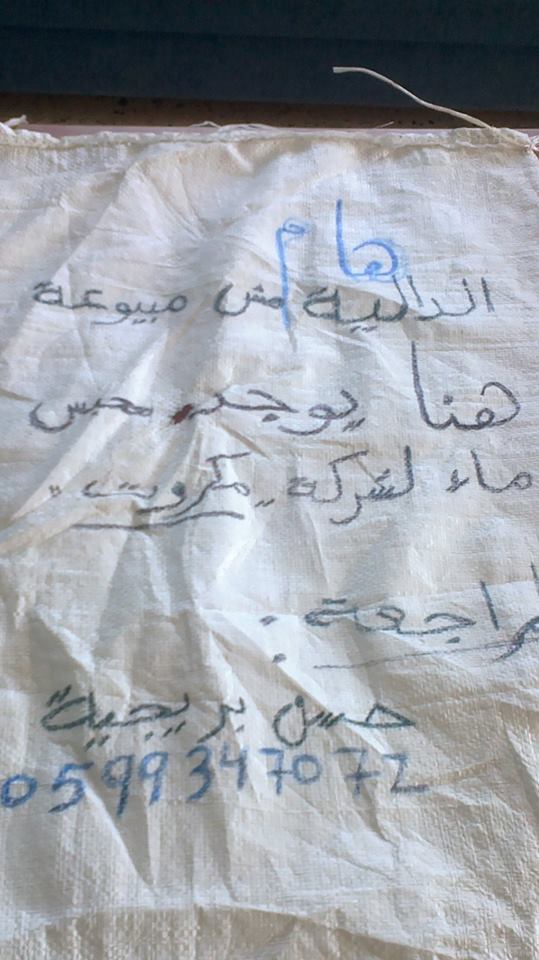 هام
الدالية مش مبيوعة
هنا يوجد محبس
ماء لشركة "مكروت"
لمراجعة:
حسن بريجية
0599347072